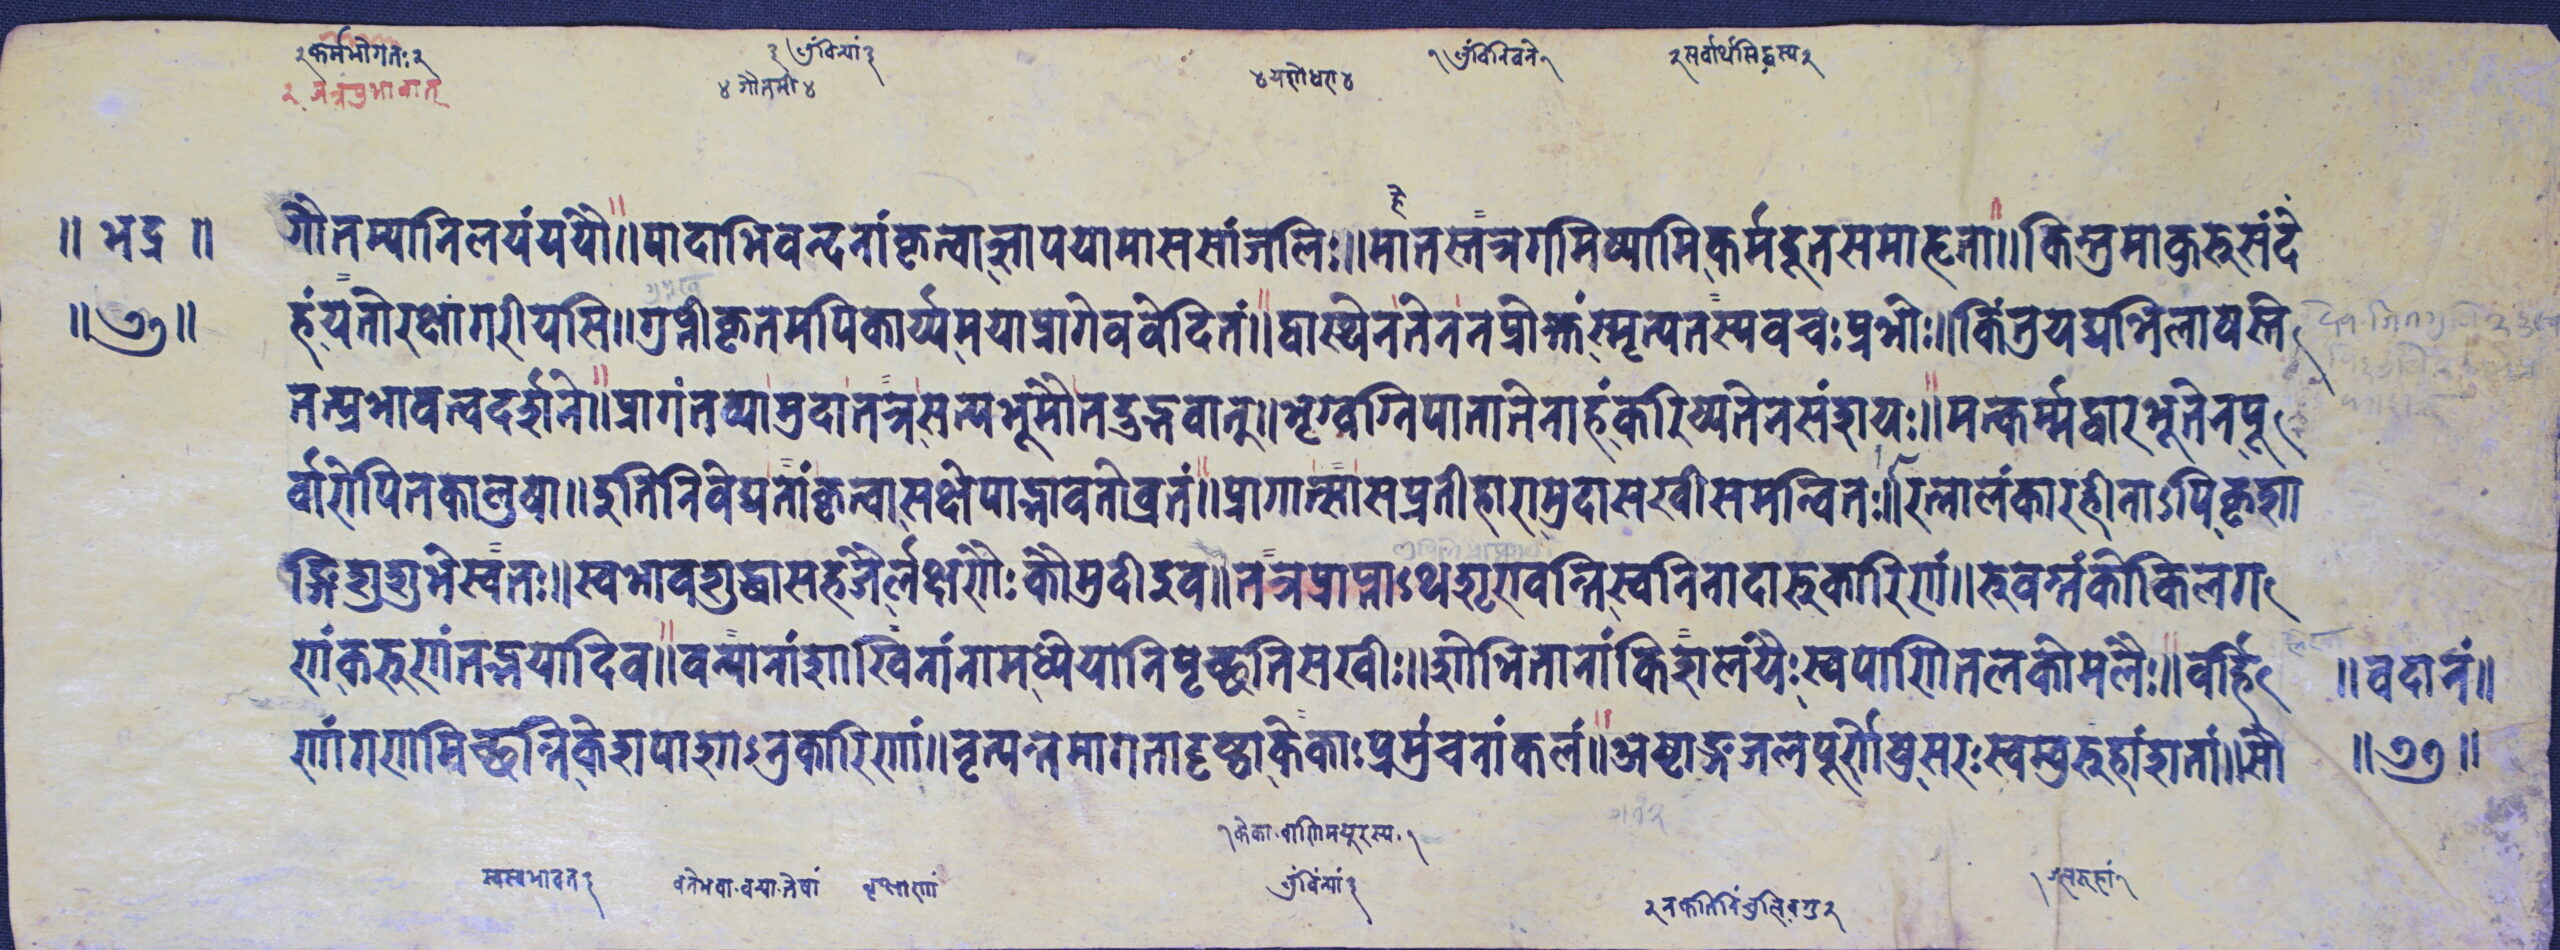 २ कर्मभोगतः २
३ लुंविन्यां ३
१ लुंविनिवने १
२ सर्वार्थसिद्धस्य २
४ गौतमी ४
४ यशोधरा ४
॥ भद्र ॥
गौतम्यानिलयंययौ॥पादाभिवन्दनांकृत्वाज्ञापयामाससांजलिः॥मातस्तत्रगमिष्यामिकर्मदूतसमाहृता॥किन्तुमाकुरुसंदे
हंयतोरक्षागरीयसि॥गुप्तीकृतमपिकार्य्यमयाप्रागेववेदितं॥द्वास्थेनतेननप्रोक्तंस्मृत्यतस्यवचःप्रभोः॥किंतुयद्यभिलाषस्ति
॥७७॥
तत्प्रभावत्वदर्शने॥प्रागंतव्यामुदातत्रसत्यभूमौतदुद्भवान्॥भृग्वग्निपातातेनाहंकरिष्यतेनसंशयः॥मत्कर्म्मद्वारभूतेनपू
र्वारोपितकालुषा॥इतिनिवेद्यतांकृत्वासक्षेपाद्भावतोव्रतं॥प्रागात्सासप्रतीहारामुदासखीसमन्वितः॥रत्नालंकारहीनाऽपिकृशा
ङ्गिशुशुभेस्वतः॥स्वभावशुद्धासहजैर्लक्षणैःकौमुदीइव॥तत्रप्राप्ताऽथशृणवन्तिस्वनिनादानुकारिणां॥रुवर्त्नंकोकिलग
णांकरुणांतद्भयादिव॥वन्यानांशाखिनांनामधेयानिपृच्छतिसखीः॥शोभितानांकिशलयैःस्वपाणितलकोमलैः॥वर्हि
णांगणमिच्छन्तिकेशपाशाऽनुकारिणां॥नृत्यन्तमागतादृष्ट्वाकेकाःप्रमुंचतांकलं॥अष्टाङ्गजलपूर्णेषुसरःस्वम्बुरुहांशतां॥सौ
॥ वदानं ॥
॥७७॥
१ केका.वाणिमयुरस्य.१
स्वस्वभावत
वनेभवा.वन्या.तेषां
वृक्षाणां
लुंविंन्यां ३